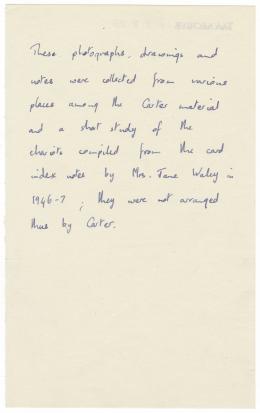 These photographs, drawings and
notes were collected from various
places among the Carter material
and a short study of the
chariots compiled from the card
index notes by Mrs. Jane Waley in
1946-7 ; they were not arranged
thus by Carter.